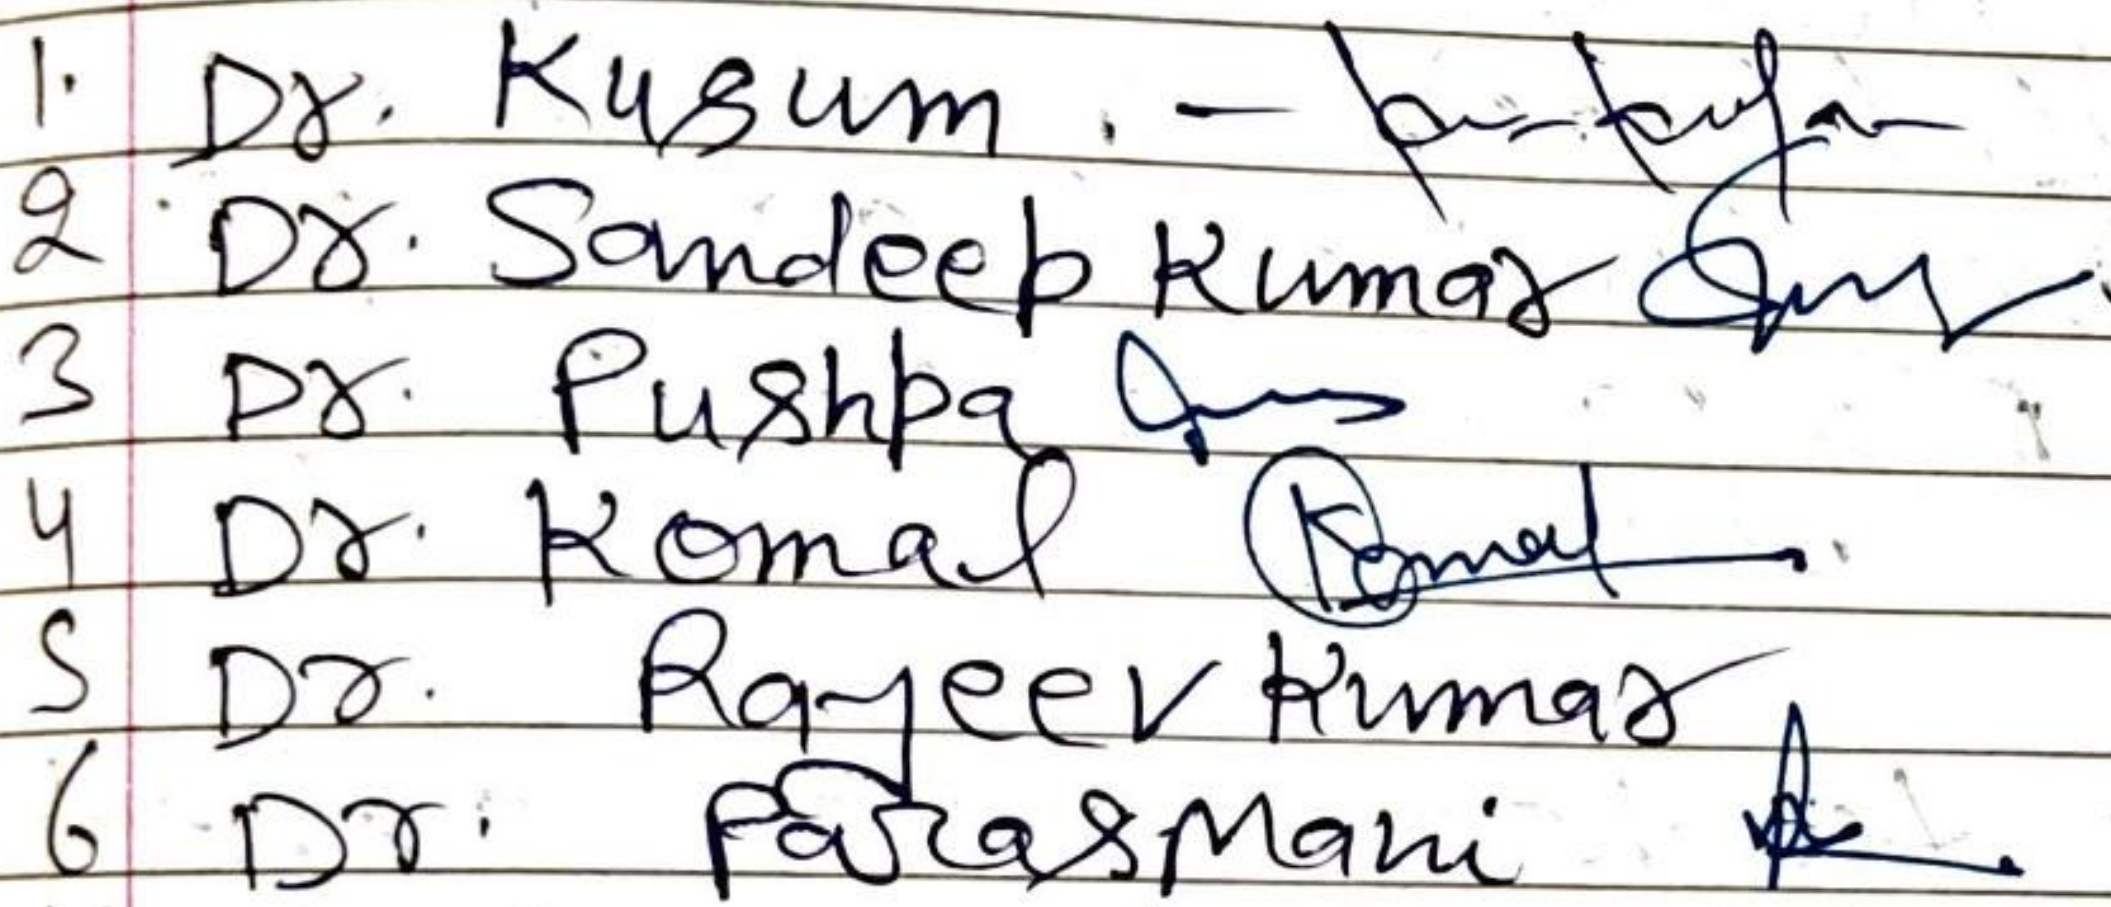 1. Dr. Kusum . -
2 Dr. Sandeep Kumar
3 Dr. Pushpa
4 Dr. Komal Komal
5 Dr. Rajeev Kumar
6 Dr. Paras Mani